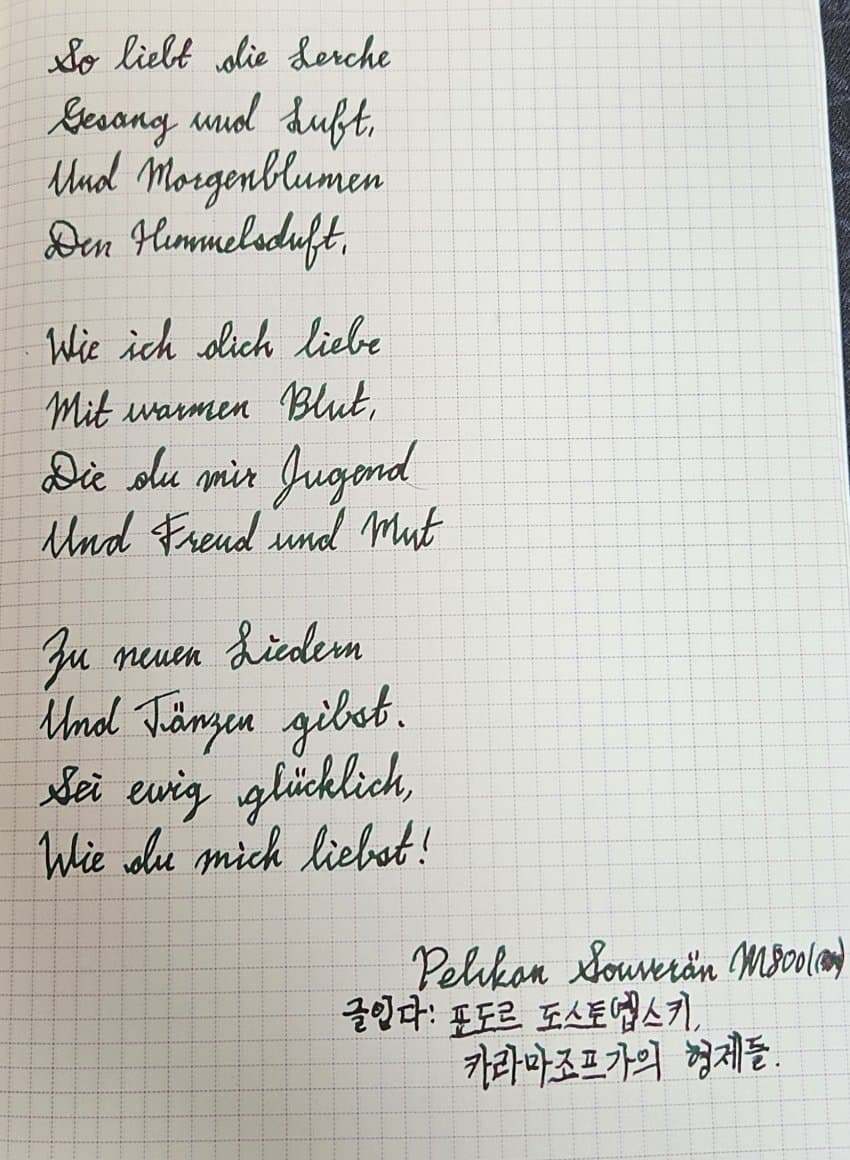 So liebt die Lerche
Gesang und Luft,
Und Morgenblumen
Den Himmelsduft,
Wie ich dich liebe
Mit warmen Blut,
Die du mir Jugend
Und Freud und Mut
Zu neuen Liedern
Und Tänzen gibst.
Sei ewig glücklich,
Wie du mich liebst!
Pelikan Souverän M800
글입다: 표도르 도스토옙스키,
카라마조프가의 형제들.